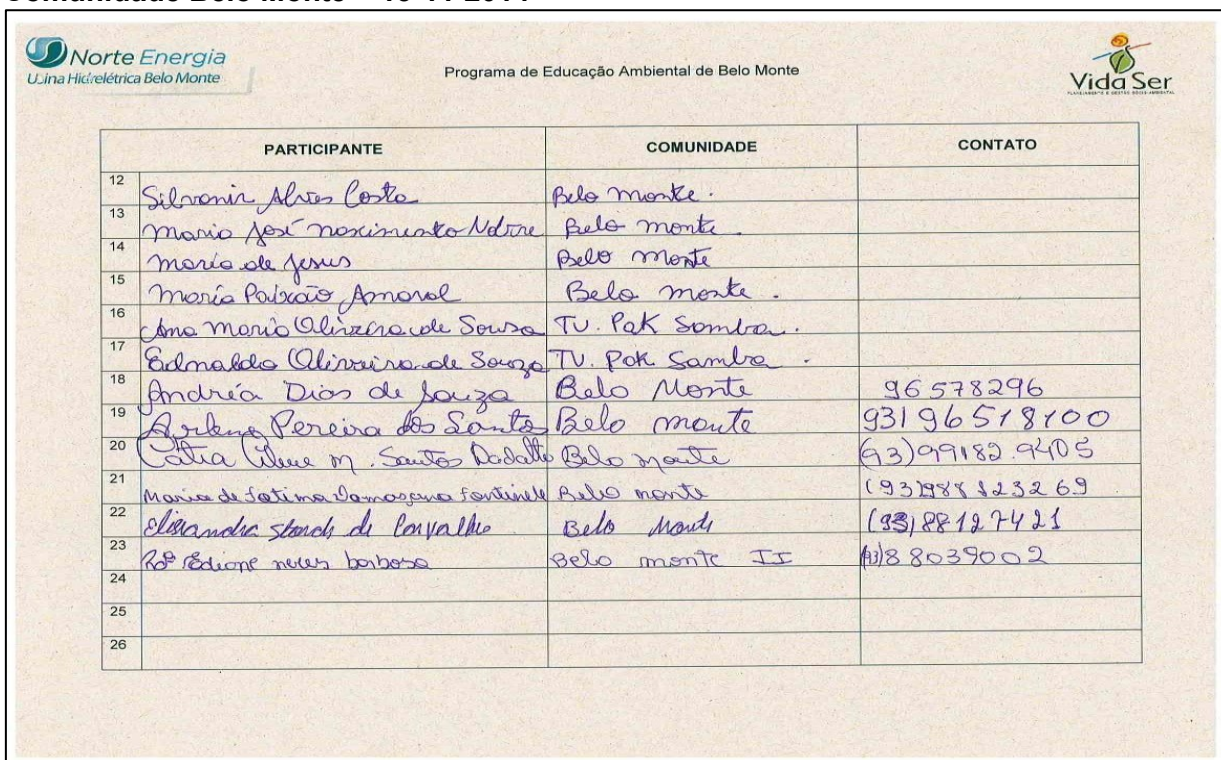 Norte Energia
Usina Hidrelétrica Belo Monte
Programa de Educação Ambiental de Belo Monte
Vida Ser
PLANEJAMENTO E GESTÃO SÓCIO-AMBIENTAL
PARTICIPANTE COMUNIDADE CONTATO
12 Silvanir Alves Costa Belo Monte.
13 Maria José nascimento Belo monte
14 Maria de Jesus Belo Monte
15 Maria Paixão Amaral Belo Monte.
16 Ana Maria Oliveira de Sousa TV. Pak Samba.
17 Ednaldo Oliveira de Souza TV. Pak Samba.
18 Andréa Dias de Souza Belo Monte 96578296
19 Pereira dos Santos Belo monte 93196518100
20 Cátia M. Santos Belo monte (93)99182.9405
21 Maria de Fatima Damascena Belo monte
22 de Carvalho Belo Monte (93) 88127421
23 Edione neves barbosa Belo monte II (93)88039002
24
25
26